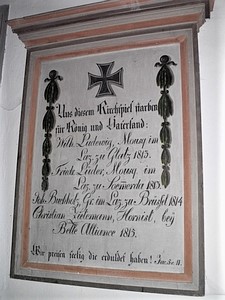 Aus diesem Kirchspiel starben
für König und Vaterland:
Wilh. Ludewig, Mousq. im
Laz. zu Glatz 1813.
Friedr. Lüder, Mousq. im
Laz. zu Sömerda 1813
Joh. Buchholz, Gr. im Laz. zu Brüssel 1814
Christian Tielemann, Hornist, bey
Belle Alliance 1815.
Wir preisen selig die erduldet haben! Jac. 5 v. 11.